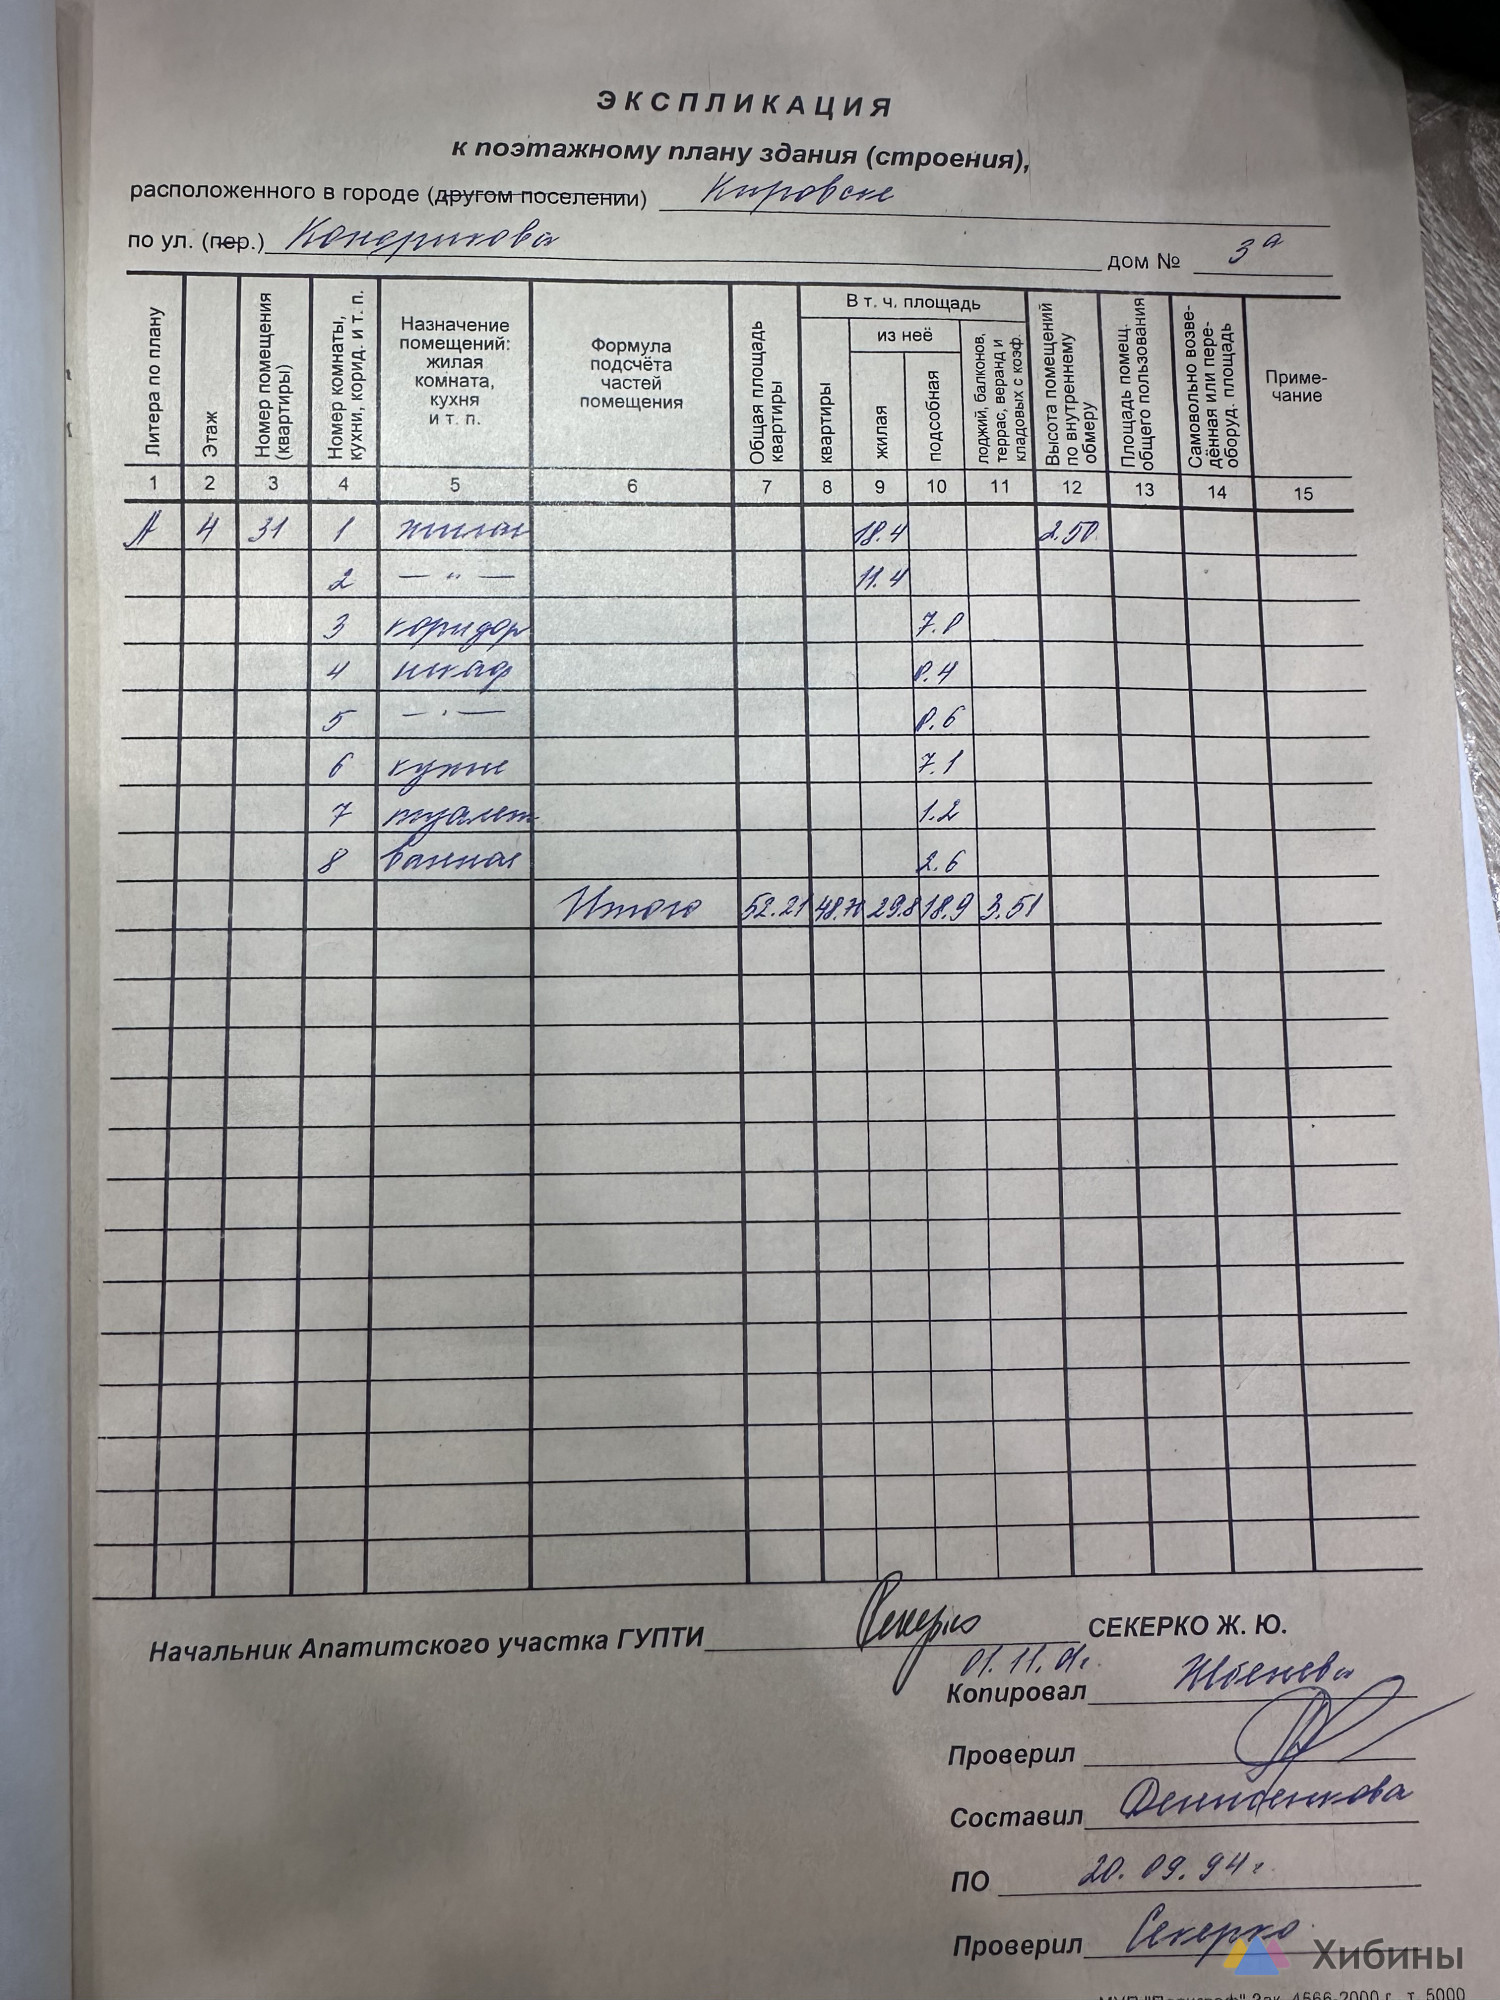 ЭКСПЛИКАЦИЯ
к поэтажному плану здания (строения),
расположенного в городе (другом поселении) Кировске
по ул. (пер.) Кондрикова дом № 3а
Литера по плану
Этаж
Номер помещения (квартиры)
Номер комнаты, кухни, корид. и т. п.
Назначение помещений: жилая комната, кухня и т. п.
Формула подсчёта частей помещения
Общая площадь квартиры
В т. ч. площадь
квартиры
из неё
жилая
подсобная
лоджий, балконов, террас, веранд и кладовых с коэф.
Высота помещений по внутреннему обмеру
Площадь помещ. общего пользования
Самовольно возведённая или переоборуд. площадь
Примечание
1 2 3 4 5 6 7 8 9 10 11 12 13 14 15
А 4 31 1 жилая 18.4 2.50
2 — " — 11.4
3 коридор 7.0
4 шкаф 0.4
5 — " — 0.6
6 кухня 7.1
7 туалет 1.2
8 ванная 2.6
Итого 52.21 48.70 29.8 18.9 3.51
Начальник Апатитского участка ГУПТИ Секерко СЕКЕРКО Ж. Ю.
01.11.01г.
Копировал
Проверил
Составил
ПО 20.09.94г.
Проверил Секерко
Хибины
Зак. 4566-2000 г. т. 5000